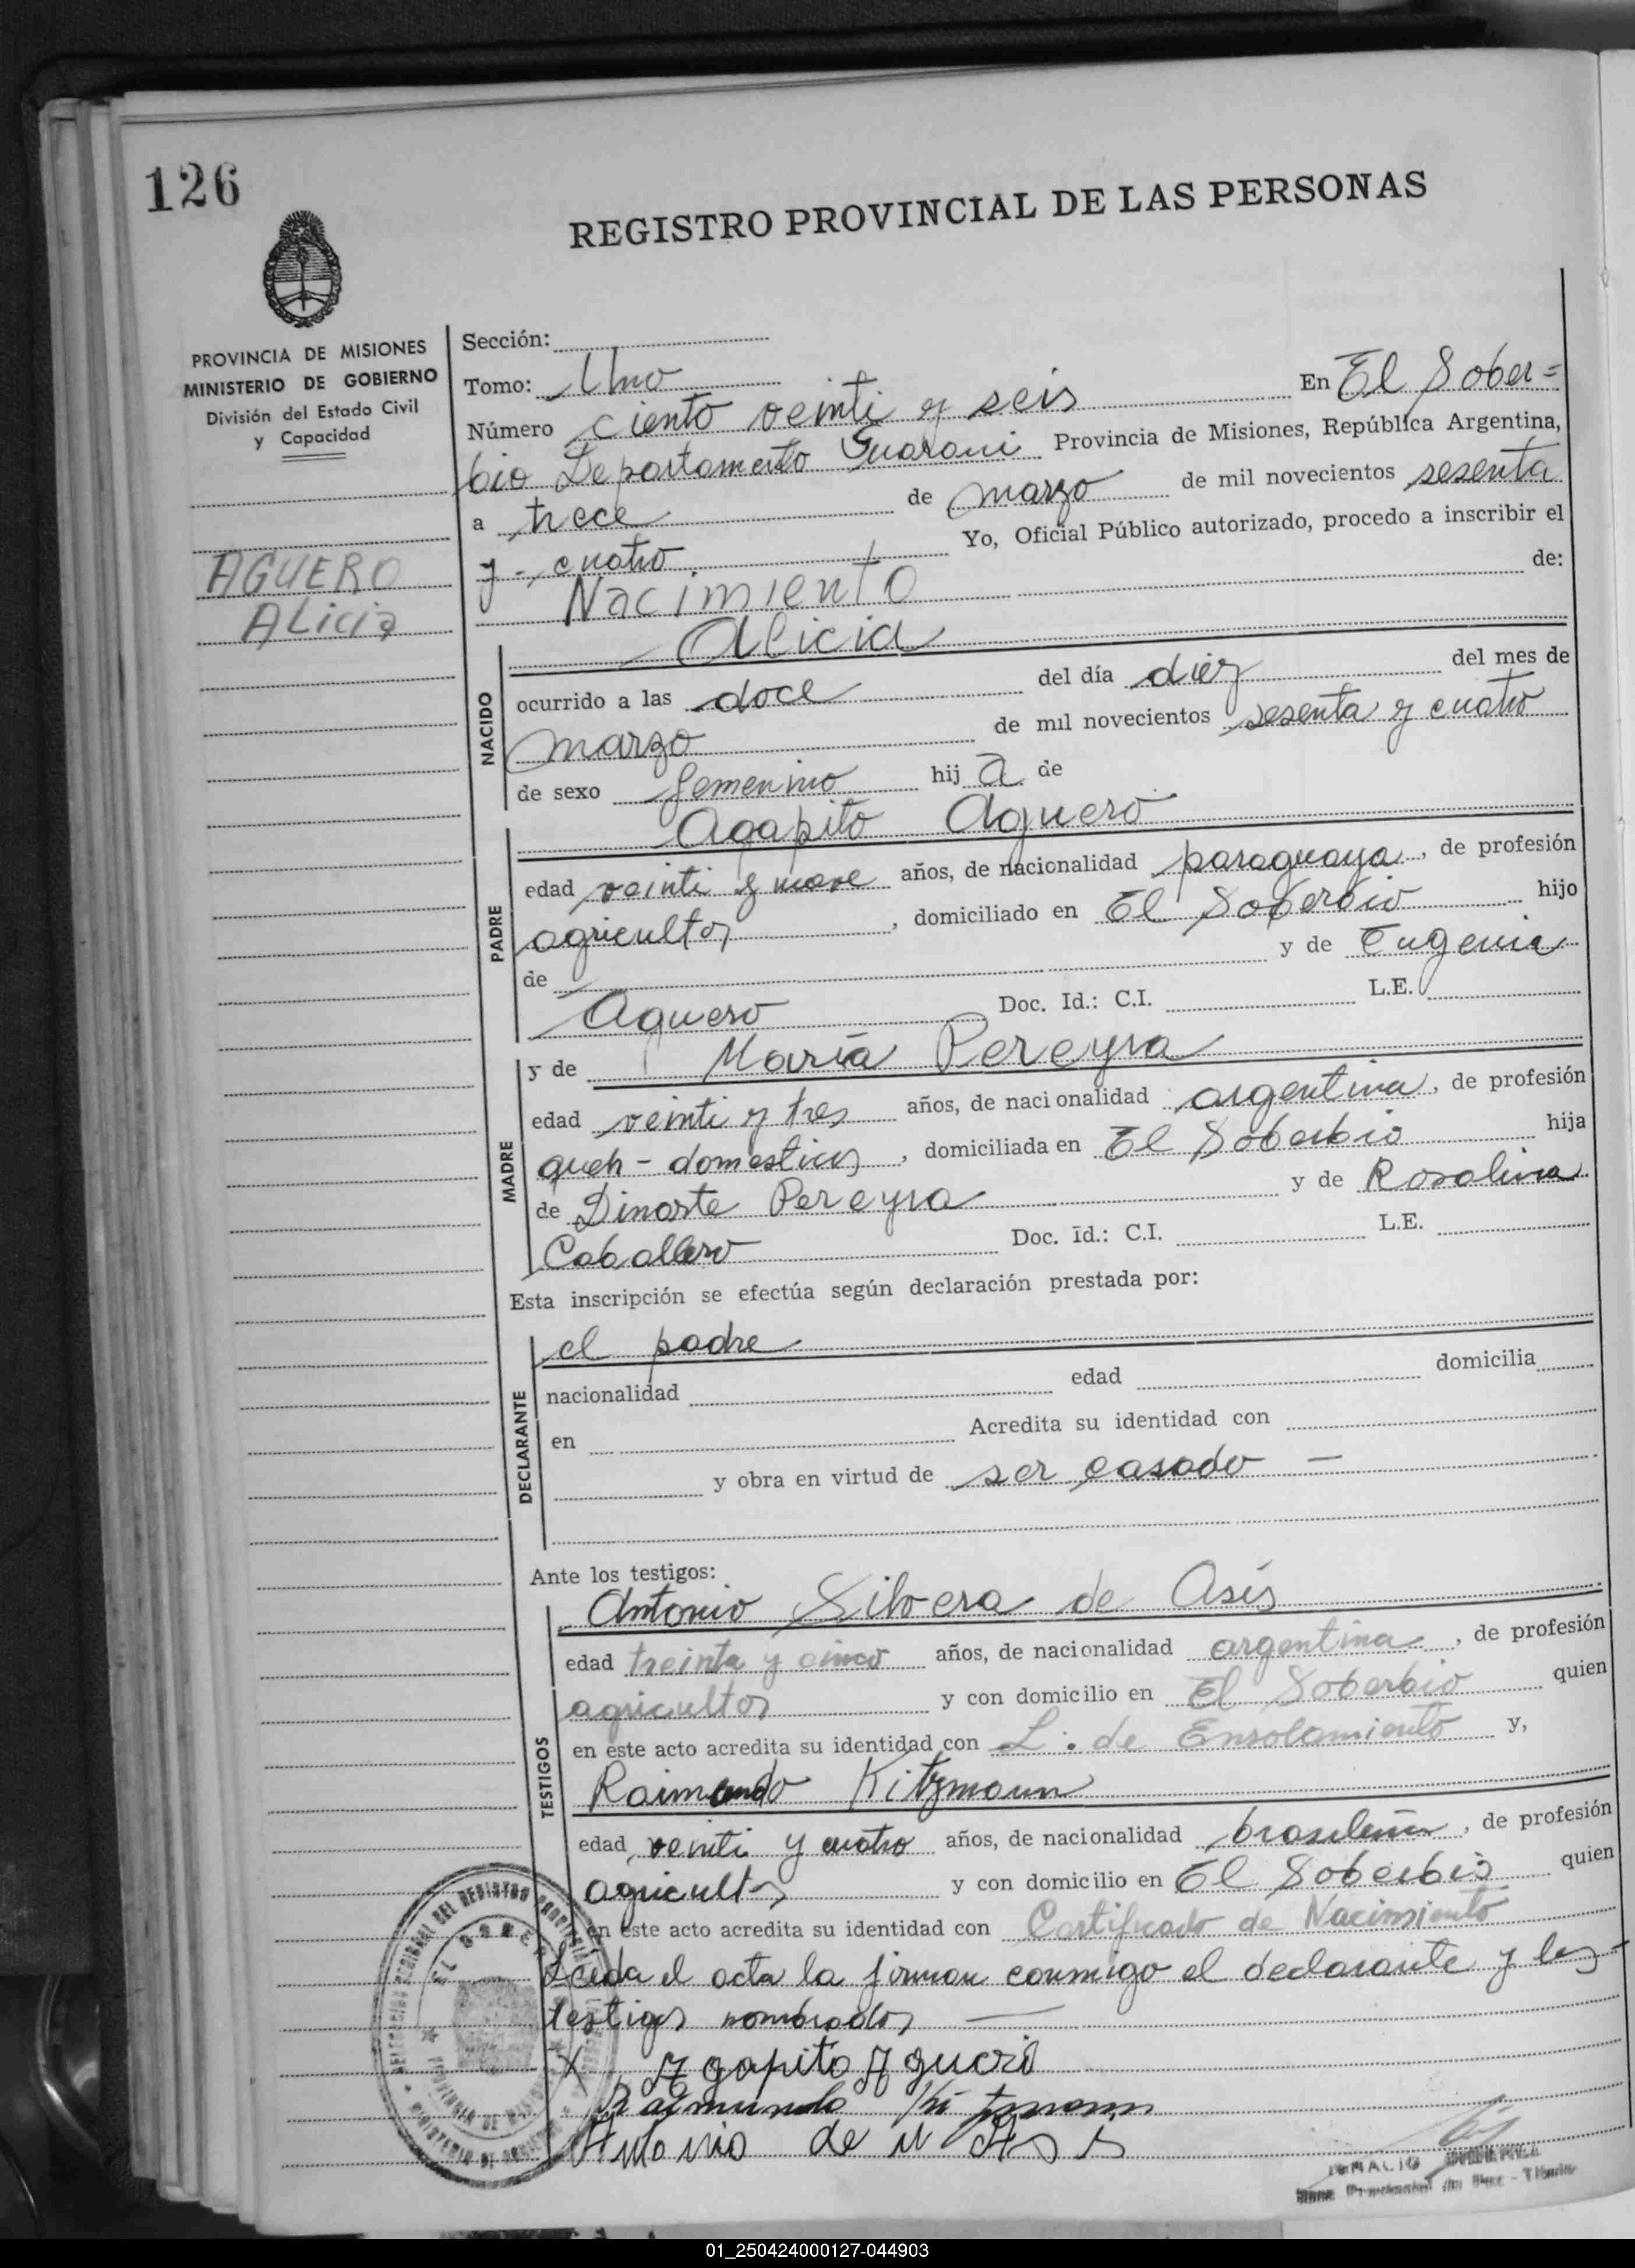 126
REGISTRO PROVINCIAL DE LAS PERSONAS
PROVINCIA DE MISIONES
MINISTERIO DE GOBIERNO
División del Estado Civil
y Capacidad
AGUERO
ALicia
Sección:
Tomo: Uno
Número ciento veinti y seis En El Sober=
bio Departamento Guarani Provincia de Misiones, República Argentina,
a trece de marzo de mil novecientos sesenta
y cuatro Yo, Oficial Público autorizado, procedo a inscribir el
Nacimiento de:
Alicia
NACIDO
ocurrido a las doce del día diez del mes de
marzo de mil novecientos sesenta y cuatro
de sexo femenino hij a de
Agapito Aguero
PADRE
edad veinti y nueve años, de nacionalidad paraguaya, de profesión
agricultor, domiciliado en El Soberbio hijo
de y de Eugenia
Aguero Doc. Id.: C.I. L.E.
y de María Pereyra
MADRE
edad veinti y tres años, de nacionalidad argentina, de profesión
queh - domesticos, domiciliada en El Soberbio hija
de Dinarte Pereyra y de Rosalina
Caballero Doc. Id.: C.I. L.E.
Esta inscripción se efectúa según declaración prestada por:
el padre
DECLARANTE
nacionalidad edad domicilia
en Acredita su identidad con
y obra en virtud de ser casado —
Ante los testigos:
Antonio Silvera de Asís
TESTIGOS
edad treinta y cinco años, de nacionalidad argentina, de profesión
agricultor y con domicilio en El Soberbio quien
en este acto acredita su identidad con L. de Enrolamiento y,
Raimundo Kitzmann
edad veinti y cuatro años, de nacionalidad brasileña, de profesión
agricultor y con domicilio en El Soberbio quien
en este acto acredita su identidad con Certificado de Nacimiento
Leída el acta la firman conmigo el declarante y los
testigos nombrados —
X Agapito Aguero
Raimundo Kitzmann
Antonio de Asis
IGNACIO
01_250424000127-044903